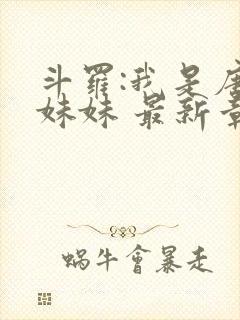 斗羅:我是
妹妹 最新
蝸牛會暴走